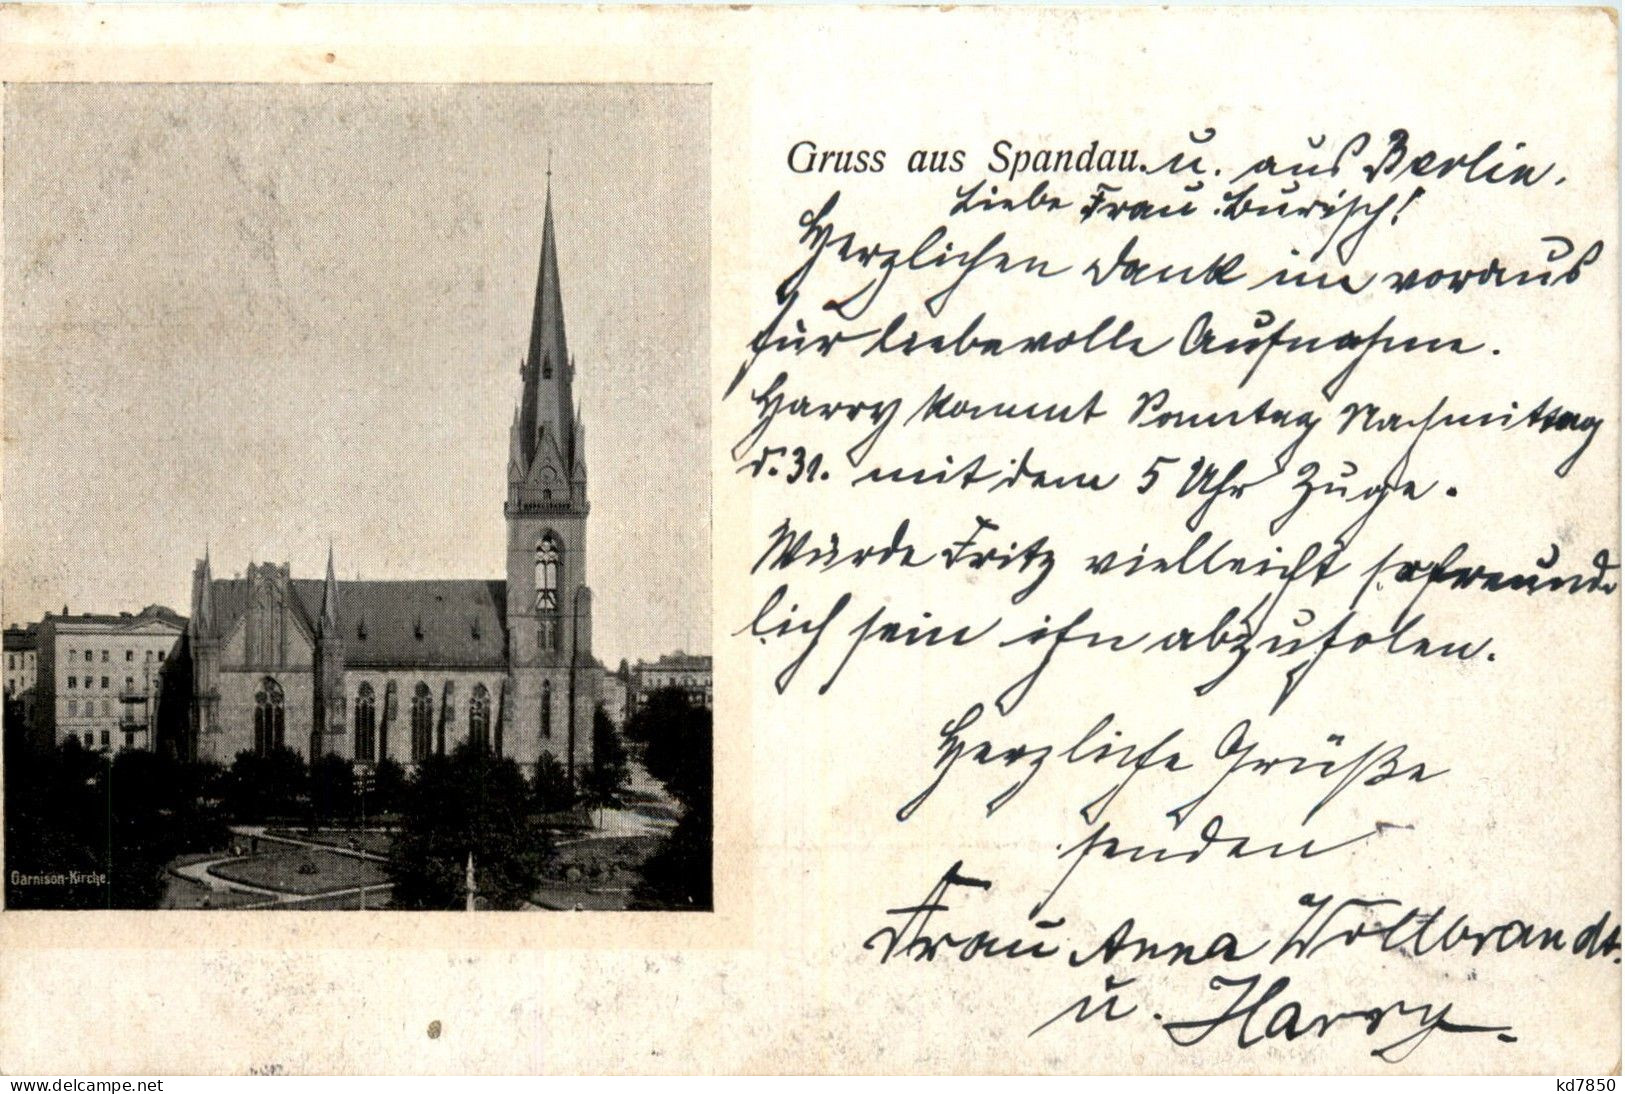 Gruss aus Spandau. u. aus Berlin.
Liebe Frau Burisch!
Herzlichen Dank im voraus
für liebevolle Aufnahme.
Harry kommt Sonntag Nachmittag
d. 31. mit dem 5 Uhr Zuge.
Würde Fritz vielleicht so freund-
lich sein ihn abzuholen.
Herzliche Grüße
senden
Frau Anna Woltbrandt.
u. Harry.
Garnison-Kirche.
delcampe.net
kd7850